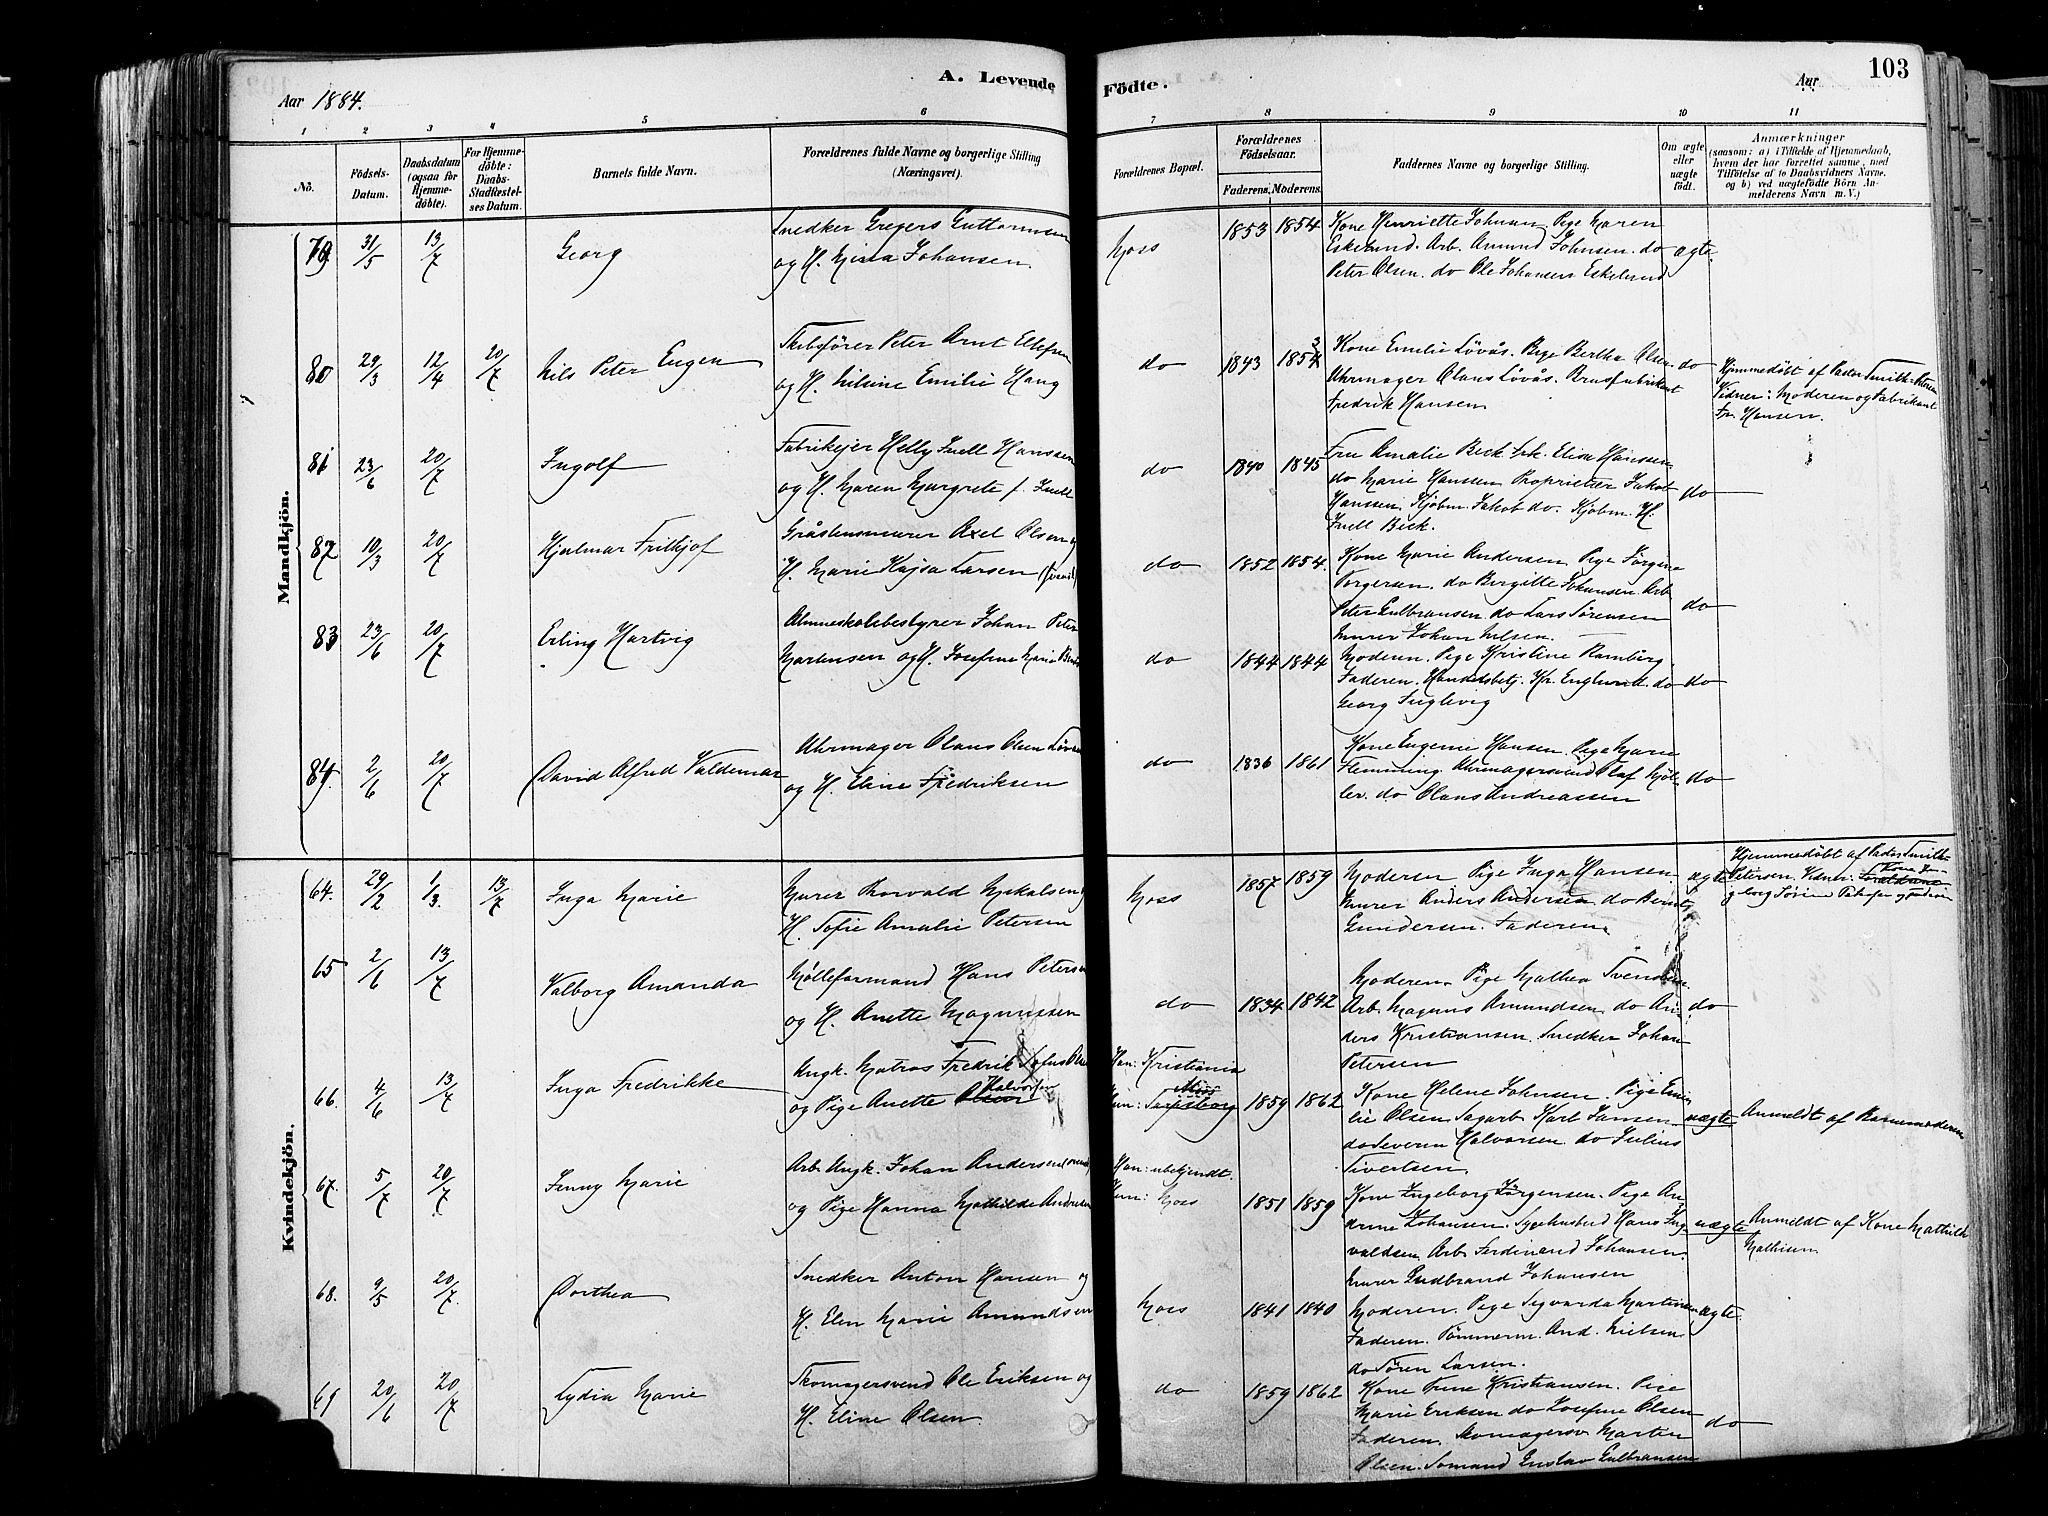 A. Levende
Aar 1884.
1 2 3 4 5 6
No.
Födsels-
Datum.
Daabsdatum
(ogsaa for
Hjemme-
döbte).
For Hjemme-
döbte:
Daabs-
Stadfæstel-
ses Datum.
Barnets fulde Navn.
Forældrenes fulde Navne og borgerlige Stilling
(Næringsvei).
Mandkjön.
79 31/5 13/7 Georg
Snedker Gregers Guttormsen
og H. Mina Johansen.
80 29/3 12/4 20/7 Nils Peter Eugen
Skibsfører Peter Arnt Ellefsen
og H. Nilsine Emilie Haug
81 23/6 20/7 Ingolf
Fabrikejer Helly Juell Hanssen
og H. Maren Margrete f. Juell
82 10/3 20/7 Hjalmar Fritjof
Gråstensmurer Axel Olsen og
H. Marie Kajsa Larsen
83 23/6 20/7 Erling Hartvig
Almueskolebestyrer Johan Peter
Martensen og H. Josefine Marie
84. 2/6 20/7 David Alfred Valdemar
Uhrmager Olaus Olsen Løvås
og H. Eline Fredriksen
Kvindekjön.
64. 29/2 1/3. 13/7 Inga Marie
Murer Thorvald Mikalsen og
H. Sofie Amalie Petersen
65 2/6 13/7 Valborg Amanda
Mølleformand Hans Petersen
og H. Anette Magnussen
66. 4/6 13/7 Inga Fredrikke
Ungk. Matros Fredrik Sofus Olsen
og Pige Anette Olsen Halvorsen
67. 5/7 20/7 Jenny Marie
Arb. Ungk. Johan Andersen
og Pige Hanna Mathilde Andersen
68. 9/5 20/7. Dorthea
Snedker Anton Hansen og
H. Elen Marie Amundsen
69 20/6 20/7 Lydia Marie
Skomagersvend Ole Eriksen og
H. Eline Olsen
Födte.
Aar
103
7 8 9 10 11
Forældrenes Bopæl.
Forældrenes
Födselsaar.
Faderens. Moderens.
Faddernes Navne og borgerlige Stilling.
Om ægte
eller
uægte
födt.
Anmærkninger
(saasom: a) i Tilfælde af Hjemmedaab,
hvem der har forrettet samme, med
Tilföielse af to Daabsvidners Navne,
og b) ved uægtefödte Börn An-
melderens Navn m. V.)
Moss 1853 1854 Kone Henriette Johnsen. Pige Maren
Eskelund. Arb. Amund Johnsen. do ægte
Peter Olsen. do Ole Johansen Eskelund
do 1843 1854 3 Kone Emilie Løvås. Pige Bertha Olsen. do
Uhrmager Olaus Løvås. Brusfabrikant
Fredrik Hansen
Hjemmedøbt af Pastor Smith-Petersen
Vidner: Moderen og Fabrikant
Fr. Hansen.
do 1840 1845 Fru Amalie Beck Frk. Elisa Hanssen
do Marie Hanssen Proprietær Jakob do
Hanssen, Kjøbm. Jakob do. Kjøbm. H.
Juell Beck.
do 1852 1854. Kone Marie Andersen Pige Jørgine
Torgersen. do Bergitte Johansen. Arb
Peter Gulbransen do Lars Sørensen do
Murer Johan Nilsen.
do 1844 1844 Moderen. Pige Kristine Ramberg.
Faderen. Handelsbetj. Kr. Englund. do do
Georg Fuglevig
do 1836 1861 Kone Eugenie Hansen. Pige Marie
Flemming. Uhrmagersvend Olaf Møl- do
ler. do Olaus Andreassen
Moss 1857 1859 Moderen Pige Inga Hansen ægte
Murer Anders Andersen do Bernt
Gundersen. Faderen.
Hjemmedøbt af Pastor Smith-
Petersen. Vidner: Forældrene Kone In-
geborg
do 1834 1842 Moderen. Pige Mathea Svendsen
Arb. Magnus Amundsen. do An- do
ders Kristiansen. Snedker Johan
Petersen
Han: Kristiania
Hun: Sarpsborg Moss 1859 1862 Kone Helene Johnsen. Pige Emi-
lie Olsen Sagarb. Karl Jansen uægte Anmeldt af Barnemoderen
do Severin Halvorsen. do Julius
Sivertsen.
Han: ubekjendt.
Hun: Moss 1851 1859 Kone Ingeborg Jørgensen. Pige An-
drine Johansen. Sygehusbud Hans Ing- uægte Anmeldt af Kone Mathilde
valdsen Arb. Ferdinand Johansen. Mathisen
Murer Gudbrand Johansen
Moss 1841 1840 Moderen. Pige Sigvarda Martinsen ægte
Faderen. Tømmerm. And. Nielsen
do Søren Larsen.
do 1859 1862 Kone Trine Kristiansen. Pige
Marie Eriksen do Josefine Olsen do
Faderen. Skomagersv. Martin
Olsen. Sømand Gustav Gulbransen